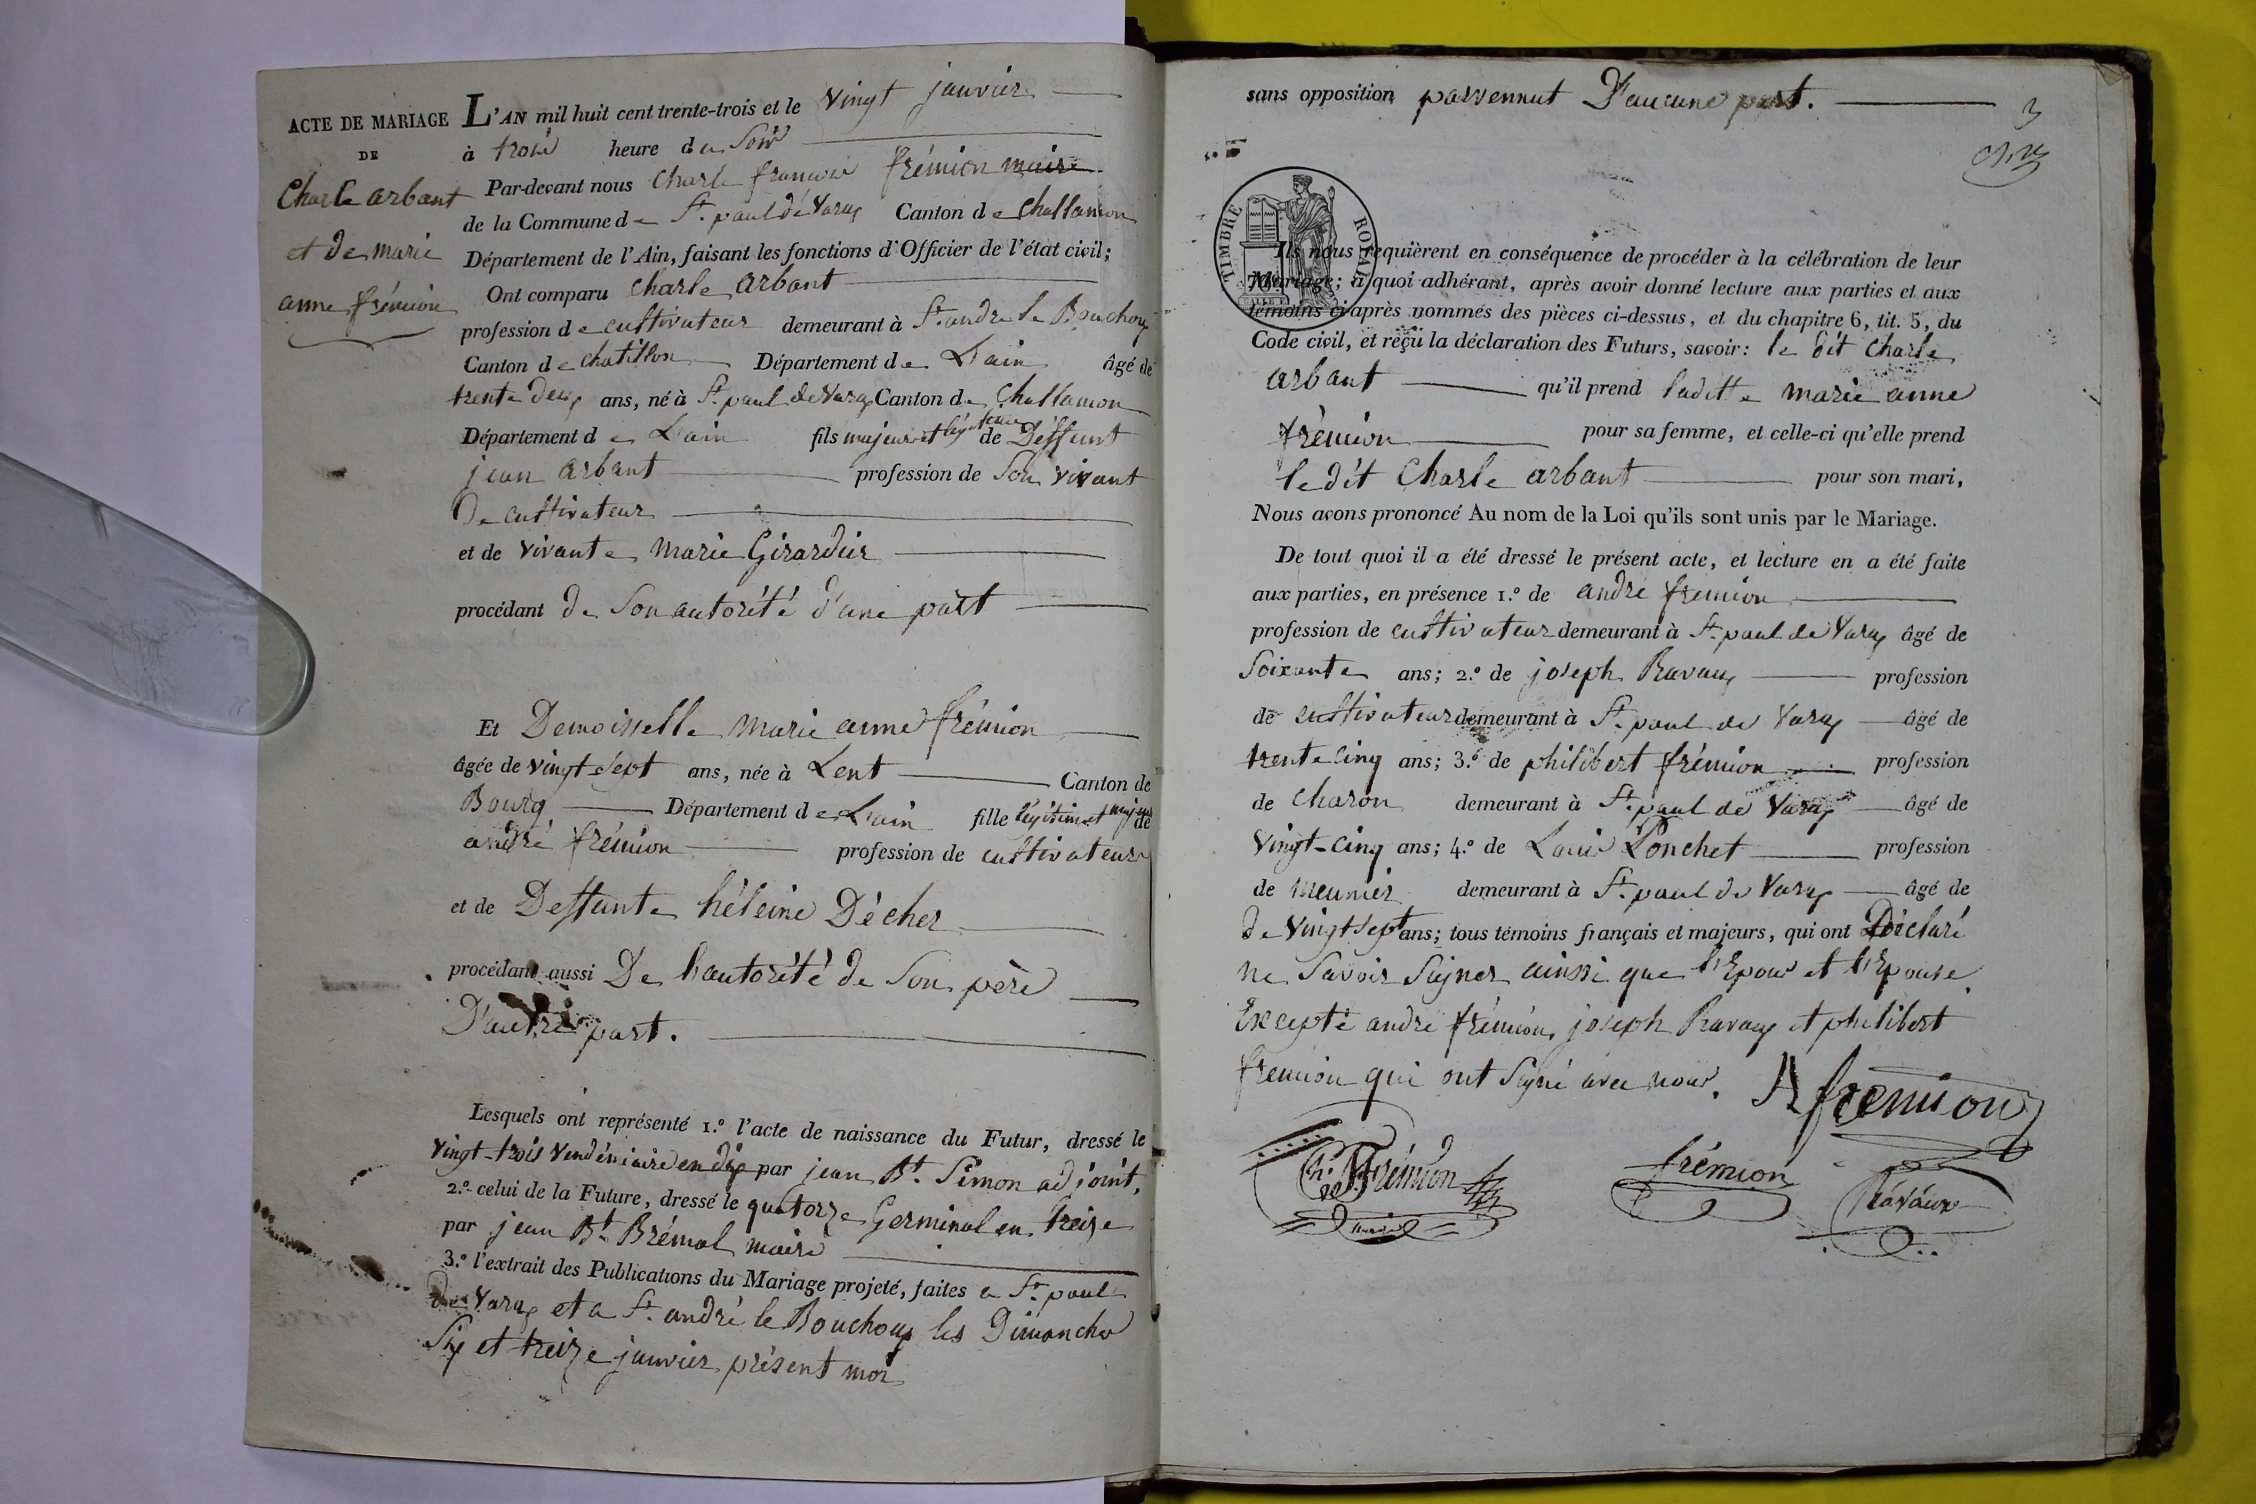 ACTE DE MARIAGE
DE
Charle arbant
et de marie
anne frémion
L'AN mil huit cent trente-trois et le vingt janvier
à trois heure du Soir
Par-devant nous Charle francois frémion maire
de la Commune de St. paul de Varax Canton de Challamon
Département de l'Ain, faisant les fonctions d'Officier de l'état civil;
Ont comparu Charle arbant
profession de cultivateur demeurant à St. andre le Bouchoux
Canton de chatillon Département de L'ain âgé de
trente deux ans, né à St. paul de Varax Canton de Challamon
Département de L'ain fils majeur et légitime de Deffunt
jean arbant profession de Son vivant
De cultivateur
et de vivante marie Girardier
procédant de Son autorité d'une part
Et Demoisselle marie anne frémion
âgée de vingt-sept ans, née à Lent Canton de
Bourg Département de L'ain fille légitime et majeure de
andré frémion profession de cultivateur
et de Deffunte héleine Décher
procédant aussi De L'autorité de Son père
D'autre part.
Lesquels ont représenté 1.º l'acte de naissance du Futur, dressé le
vingt-trois vendémiaire en dix par jean Bt. Simon adjoint,
2.º celui de la Future, dressé le quatorze Germinal en treize
par jean Bt. Brémal maire
3.º l'extrait des Publications du Mariage projeté, faites a St. paul
de Varax et a St. andré le Bouchoux les Dimanche
Six et treize janvier présent mois
sans opposition parvennut D'aucune part.
3
TIMBRE ROYAL
Ils nous requièrent en conséquence de procéder à la célébration de leur
Mariage; à quoi adhérant, après avoir donné lecture aux parties et aux
témoins ci-après nommés des pièces ci-dessus, et du chapitre 6, tit. 5, du
Code civil, et reçu la déclaration des Futurs, savoir: le dit Charle
arbant qu'il prend laditte marie anne
frémion pour sa femme, et celle-ci qu'elle prend
le dit Charle arbant pour son mari,
Nous avons prononcé Au nom de la Loi qu'ils sont unis par le Mariage.
De tout quoi il a été dressé le présent acte, et lecture en a été faite
aux parties, en présence 1.º de andré fremion
profession de cultivateur demeurant à St. paul de Varax âgé de
Soixante ans; 2.º de joseph Ravaux profession
de cultivateur demeurant à St. paul de Varax âgé de
trente cinq ans; 3.º de philibert frémion profession
de Charon demeurant à St. paul de Varax âgé de
vingt-cinq ans; 4.º de Louis Ponchet profession
de meunier demeurant à St. paul de Varax âgé de
de vingt sept ans; tous témoins français et majeurs, qui ont Déclaré
ne Savoir Signer ainssi que l'Epoux et l'Epouse.
Excepté andré frémion, joseph Ravaux et philibert
fremion qui ont Signé avec nous.
A fremion
Ch. Frémion
maire
frémion
Ravaux